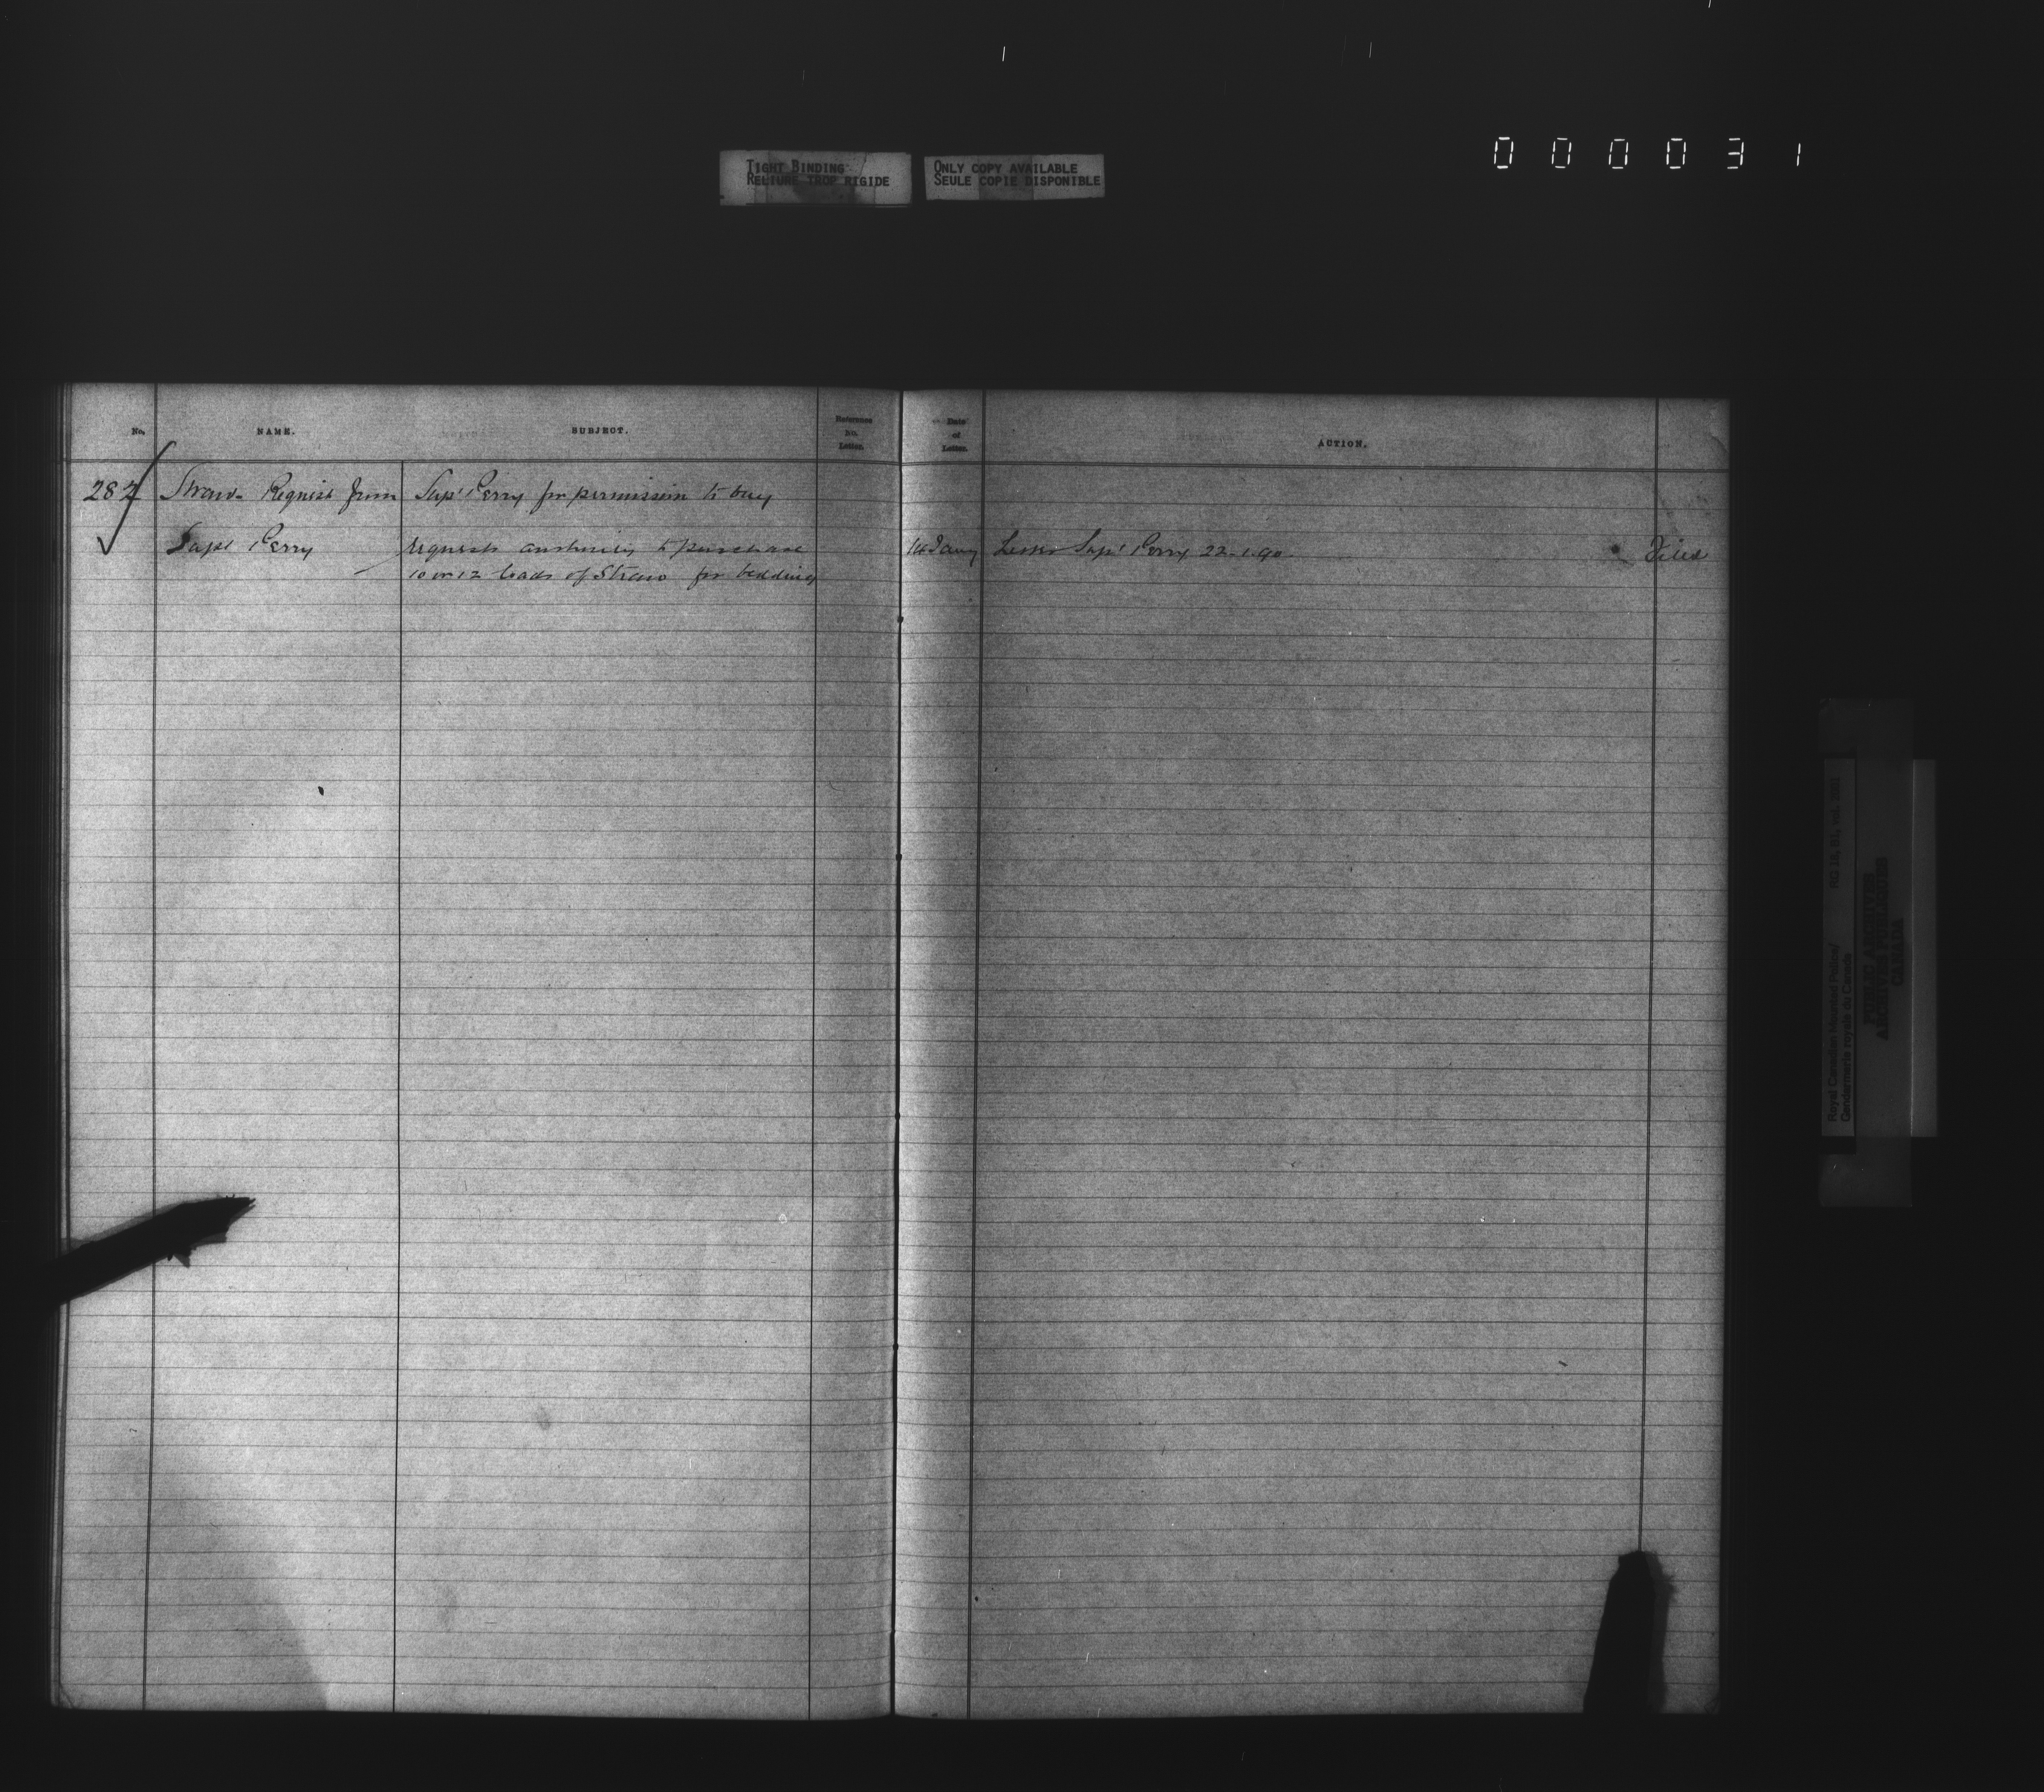 000031
TIGHT BINDING
RELIURE TROP RIGIDE
ONLY COPY AVAILABLE
SEULE COPIE DISPONIBLE
No. NAME. SUBJECT. Reference No. Letter. Date of Letter. ACTION.
282 Straw- Request from Supt Perry for permission to buy
Supt Perry requests authority to purchase 14 Jany Letter Supt Perry 22-1-90 Filed
10 or 12 loads of Straw for bedding
Royal Canadian Mounted Police/
Gendarmerie royale du Canada
PUBLIC ARCHIVES
ARCHIVES PUBLIQUES
CANADA